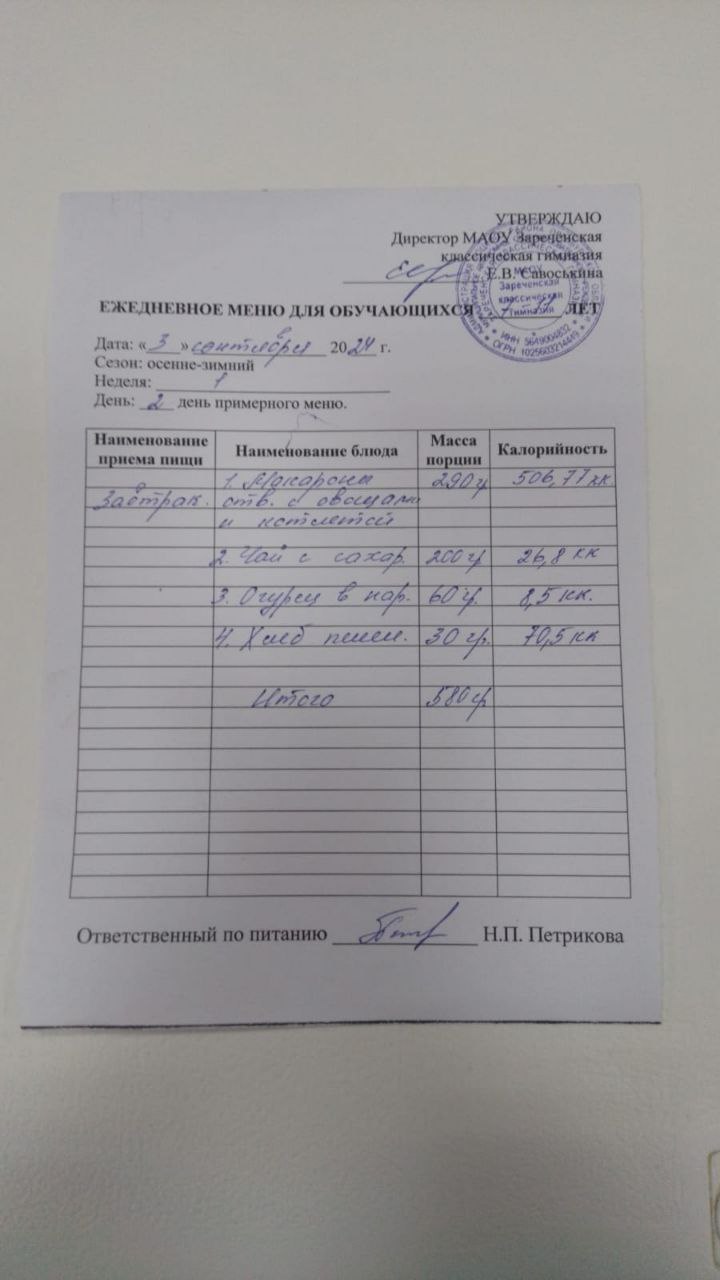 УТВЕРЖДАЮ
Директор МАОУ Зареченская
классическая гимназия
Е.В. Савоськина
МАОУ
Зареченская
классическая
гимназия
* ИНН 5649004832 *
* ОГРН 1025603214449 *
ЕЖЕДНЕВНОЕ МЕНЮ ДЛЯ ОБУЧАЮЩИХСЯ 7-11 ЛЕТ
Дата: « 3 » сентября 2024 г.
Сезон: осенне-зимний
Неделя: 1
День: 2 день примерного меню.
Наименование приема пищи Наименование блюда Масса порции Калорийность
Завтрак. 1. Макароны 290 гр 506,77 кк.
отв. с овощами
и котлетой
2. Чай с сахар. 200 гр 26,8 кк
3. Огурец в нар. 60 гр. 8,5 кк.
4. Хлеб пшен. 30 гр. 70,5 кк
Итого 580 гр
Ответственный по питанию Н.П. Петрикова